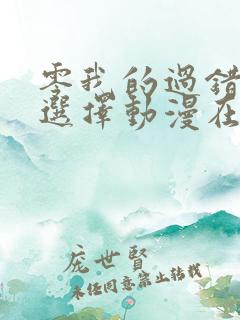 零我的過錯
選擇動漫在
庞世賢
未经同意禁止转载